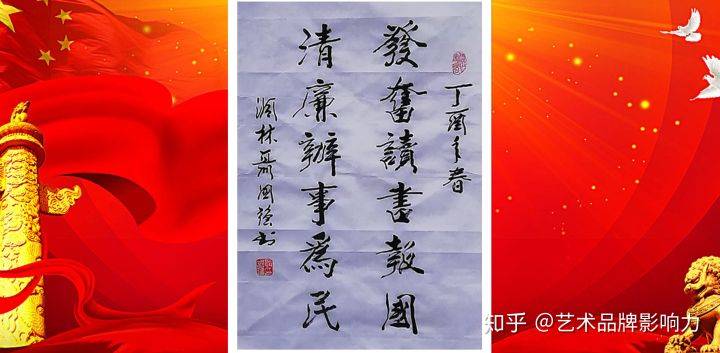 丁酉年春
發奮讀書報國
清廉辦事為民
林聶國強書
知乎 @艺术品牌影响力